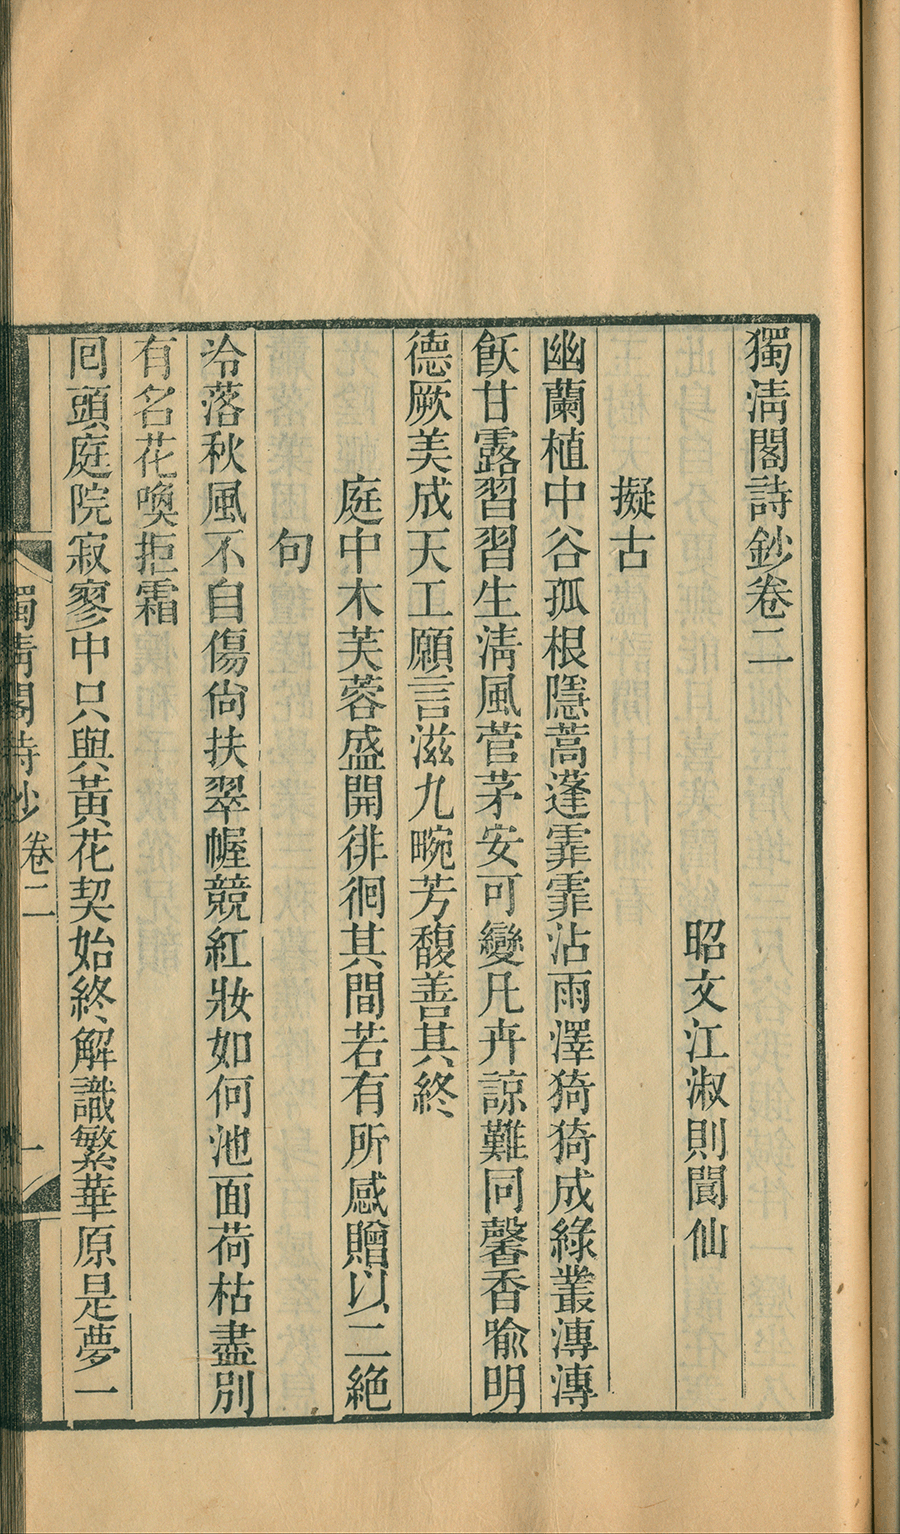 獨清閣詩鈔卷二
昭文江淑則閬仙
擬古
幽蘭植中谷孤根隱蒿蓬霏霏沾雨澤猗猗成綠叢漙漙
飫甘露習習生清風菅茅安可變凡卉諒難同馨香喻明
德厥美成天工願言滋九畹芳馥善其終
庭中木芙蓉盛開徘徊其間若有所感贈以二絶
句
冷落秋風不自傷尙扶翠幄競紅妝如何池面荷枯盡別
有名花喚拒霜
囘頭庭院寂寥中只與黃花契始終解識繁華原是夢一
獨清閣詩鈔 卷二 一